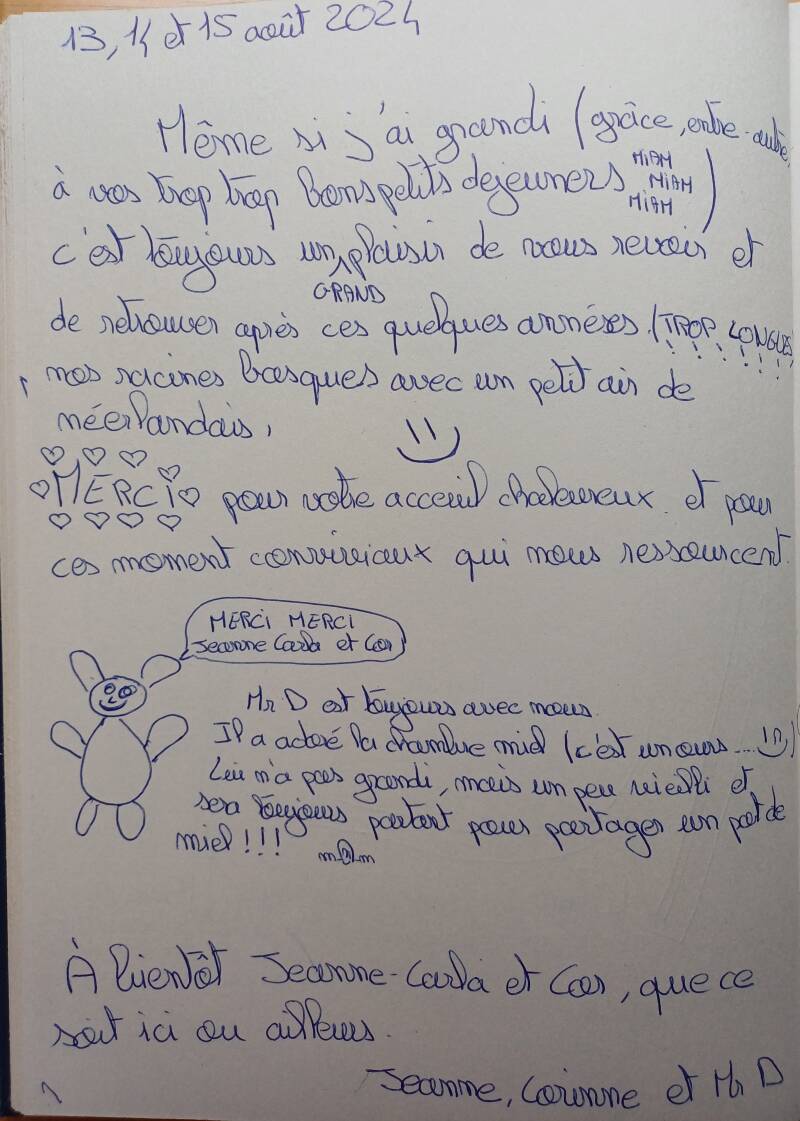 13, 14 et 15 août 2024
Même si j'ai grandi (grâce, entre-autre,
à vos trop trop bons petits dejeuners MiAM
MiAM
MiAM)
c'est toujours un plaisir de vous revoir et
GRAND
de retrouver après ces quelques années (TROP LONGUES)
!!!!!!
nos racines basques avec un petit air de
néerlandais,
MERCi pour votre acceuil chaleureux et pour
ces moment conviviaux qui nous ressourcent.
MERCi MERCi
Jeanne Carla et Cor
Mr D est toujours avec nous.
Il a adoré la chambre miel (c'est un ours ....)
Lui n'a pas grandi, mais un peu vieilli et
sera toujours partant pour partager un pot de
miel !!!
À bientôt Jeanne-Carla et Cor, que ce
soit ici ou ailleurs.
Jeanne, Corinne et Mr D